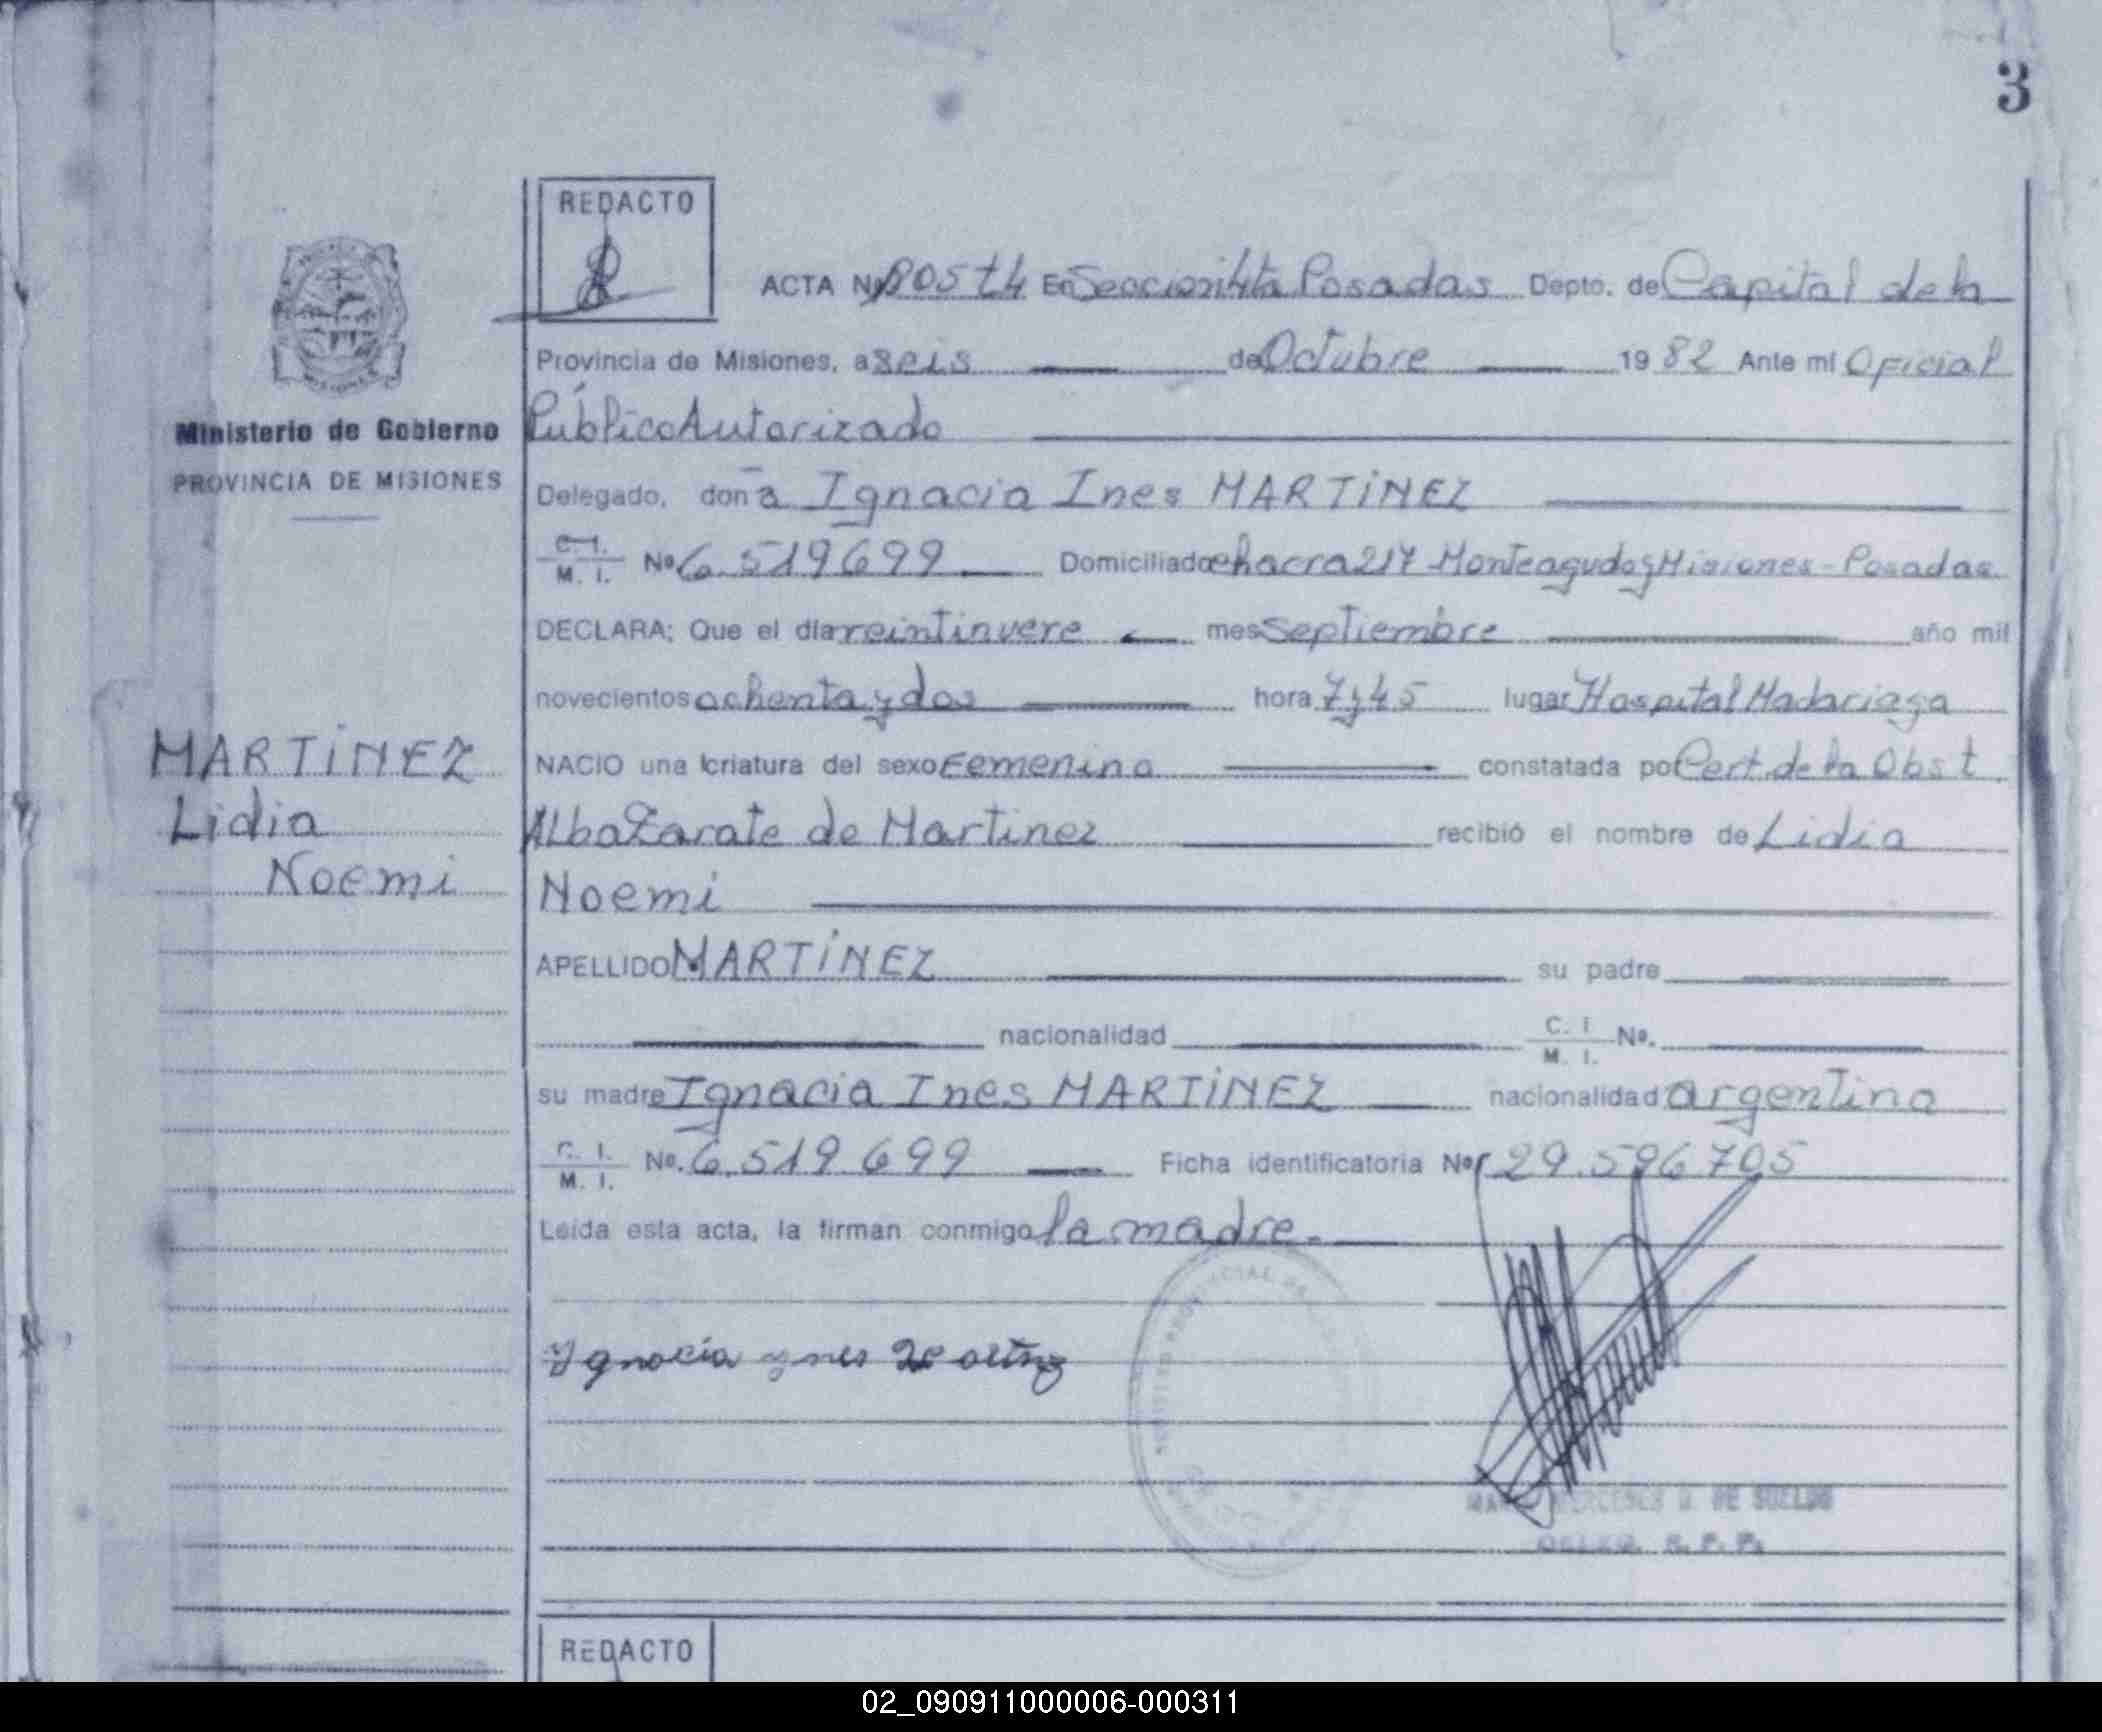 3
REDACTO
ACTA Nº 805 t4 En Seccion 4ta Posadas Depto. de Capital de la
Provincia de Misiones, a seis de Octubre 1982 Ante mi Oficial
Ministerio de Gobierno
Público Autorizado
PROVINCIA DE MISIONES
Delegado, don a Ignacia Ines MARTINEZ
C. I. M. I. Nº 6.519699 Domiciliado chacra 217 Monteagudo y Misiones - Posadas
DECLARA; Que el dia veintinueve mes Septiembre año mil
novecientos ochenta y dos hora 7 y 45 lugar Hospital Madariaga
MARTINEZ
NACIO una criatura del sexo Femenino constatada por Cert. de la Obst
Lidia
Alba Zarate de Martinez recibió el nombre de Lidia
Noemi
Noemi
APELLIDO MARTINEZ su padre
nacionalidad C. I M. I. Nº.
su madre Ignacia Ines MARTINEZ nacionalidad argentina
C. I. M. I. Nº. 6.519.699 Ficha identificatoria Nº 29.596705
Leída esta acta, la firman conmigo la madre.
MERCEDES DE SUELDO
REDACTO
02_090911000006-000311